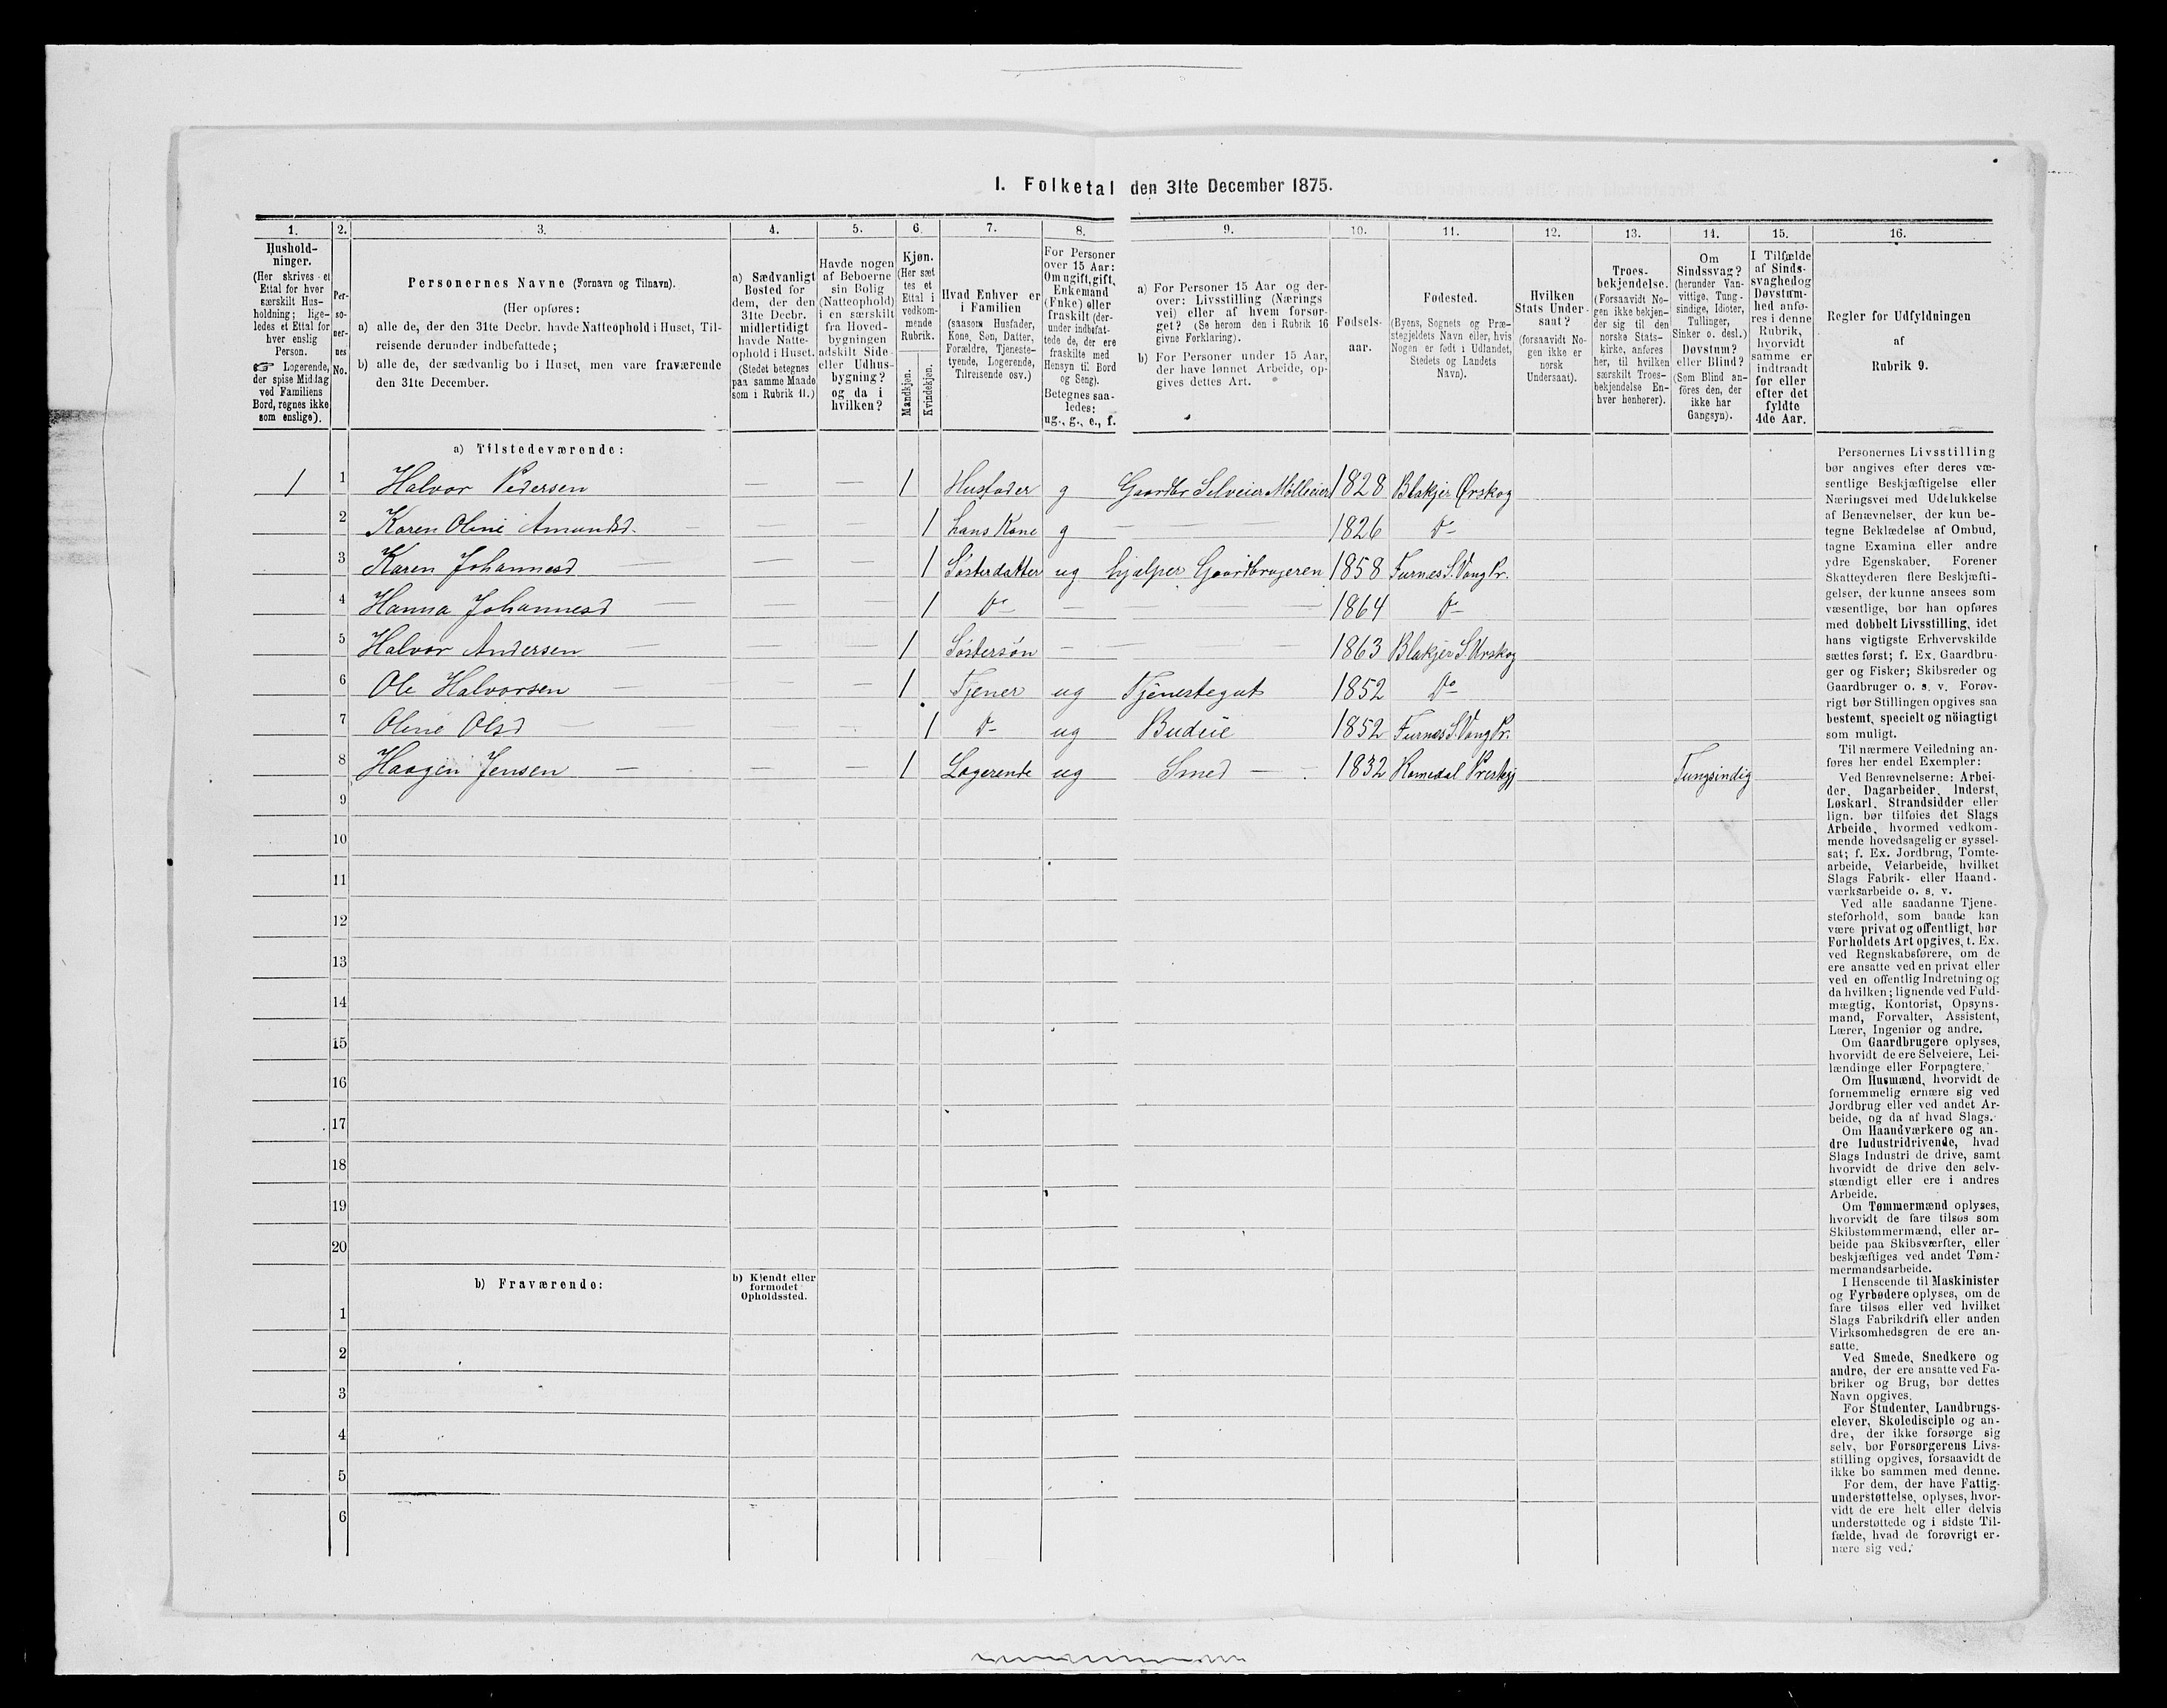 I. Folketal den 31te December 1875.
1. 2. 3. 4. 5. 6. 7. 8. 9. 10. 11. 12. 13. 14. 15. 16.
Hushold-
ninger.
(Her skrives et
Ettal for hver
særskilt Hus-
holdning; lige-
ledes et Ettal for
hver enslig
Person.
☞ Logerende,
der spise Middag
ved Familiens
Bord, regnes ikke
som enslige).
Per-
so-
ner-
nes
No.
Personernes Navne (Fornavn og Tilnavn).
(Her opføres:
a) alle de, der den 31te Decbr. havde Natteophold i Huset, Til-
reisende derunder indbefattede;
b) alle de, der sædvanlig bo i Huset, men vare fraværende
den 31te December.
a) Sædvanligt
Bosted for
dem, der den
31te Decbr.
midlertidigt
havde Natte-
ophold i Huset.
(Stedet betegnes
paa samme Maade
som i Rubrik 11.)
Havde nogen
af Beboerne
sin Bolig
(Natteophold)
i en særskilt
fra Hoved-
bygningen
adskilt Side-
eller Udhus-
bygning?
og da i
hvilken?
Kjøn.
(Her sæt
tes et
Ettal i
vedkom-
mende
Rubrik.
Mandkjøn.
Kvindekjøn.
Hvad Enhver er
i Familien
(saasom Husfader,
Kone, Søn, Datter,
Forældre, Tjeneste-
tyende, Logerende,
Tilreisende osv.)
For Personer
over 15 Aar:
Om ugift, gift,
Enkemand
(Enke) eller
fraskilt (der-
under indbefat-
tede de, der ere
fraskilte med
Hensyn til Bord
og Seng).
Betegnes saa-
ledes:
ug., g., e., f.
a) For Personer 15 Aar og der-
over: Livsstilling (Nærings
vei) eller af hvem forsør-
get? (Se herom den i Rubrik 16
givne Forklaring).
b) For Personer under 15 Aar,
der have lønnet Arbeide, op-
gives dettes Art.
Fødsels-
aar.
Fødested.
(Byens, Sognets og Præ-
stegjeldets Navn eller, hvis
Nogen er født i Udlandet,
Stedets og Landets
Navn).
Hvilken
Stats Under-
saat?
(forsaavidt No-
gen ikke er
norsk
Undersaat).
Troes-
bekjendelse.
(Forsaavidt No-
gen ikke bekjen-
der sig til den
norske Stats-
kirke, anføres
her, til hvilken
særskilt Troes-
bekjendelse En-
hver henhører).
Om
Sindssvag?
(herunder Van-
vittige, Tung-
sindige, Idioter,
Tullinger,
Sinker o. desl.)
Døvstum?
eller Blind?
(Som Blind an-
føres den, der
ikke har
Gangsyn).
I Tilfælde
af Sinds-
svaghed og
Døvstum-
hed anfø-
res i denne
Rubrik,
hvorvidt
samme er
indtraadt
før eller
efter det
fyldte
4de Aar.
Regler for Udfyldningen
af
Rubrik 9.
a) Tilstedeværende:
1 1 Halvor Pedersen — — 1 Husfader g Gaardbr. Selveier Mølleeier 1828 Blakjer Ørskog
2 Karen Oline Amundsd. — — — 1 hans Kone g — — 1826 Do
3 Karen Johannesd — — — 1 Søsterdatter ug hjælper Gaardbrugeren 1858 Furnes S. Vang Pr.
4 Hanna Johannesd — — — 1 Do — — — 1864 Do
5 Halvor Andersen — — — 1 Søstersøn — — — 1863 Blakjer S. Urskog
6 Ole Halvorsen — — — 1 Tjener ug Tjenestegut 1852 Do
7 Oline Olsd — — — 1 Do ug Budeie 1852 Furnes S. Vang Pr.
8 Haagen Jensen — — — 1 Logerende ug Smed — 1832 Romedal Prestgj Tungsindig
9
10
11
12
13
14
15
16
17
18
19
20
b) Fraværende:
b) Kjendt eller
formodet
Opholdssted.
1
2
3
4
5
6
Personernes Livsstilling
bør angives efter deres væ-
sentlige Beskjæftigelse eller
Næringsvei med Udelukkelse
af Benævnelser, der kun be-
tegne Beklædelse af Ombud,
tagne Examina eller andre
ydre Egenskaber. Forener
Skatteyderen flere Beskjæfti-
gelser, der kunne ansees som
væsentlige, bør han opføres
med dobbelt Livsstilling, idet
hans vigtigste Erhvervskilde
sættes først; f. Ex. Gaardbru-
ger og Fisker; Skibsreder og
Gaardbruger o. s. v. Forøv-
rigt bør Stillingen opgives saa
bestemt, specielt og nöiagtigt
som muligt.
Til nærmere Veiledning an-
føres her endel Exempler:
Ved Benævnelserne: Arbei-
der, Dagarbeider, Inderst,
Løskarl, Strandsidder eller
lign. bør tilføies det Slags
Arbeide, hvormed vedkom-
mende hovedsagelig er syssel-
sat; f. Ex. Jordbrug, Tomte-
arbeide, Veiarbeide, hvilket
Slags Fabrik- eller Haand-
værksarbeide o. s. v.
Ved alle saadanne Tjene-
steforhold, som baade kan
være privat og offentligt, bør
Forholdets Art opgives, t. Ex.
ved Regnskabsførere, om de
ere ansatte ved en privat eller
ved en offentlig Indretning og
da hvilken; lignende ved Fuld-
mægtig, Kontorist, Opsyns-
mand, Forvalter, Assistent,
Lærer, Ingeniør og andre.
Om Gaardbrugere oplyses,
hvorvidt de ere Selveiere, Lei-
lændinge eller Forpagtere.
Om Husmænd, hvorvidt de
fornemmelig ernære sig ved
Jordbrug eller ved andet Ar-
beide, og da af hvad Slags.
Om Haandværkere og an-
dre Industridrivende, hvad
Slags Industri de drive, samt
hvorvidt de drive den selv-
stændigt eller ere i andres
Arbeide.
Om Tømmermænd oplyses,
hvorvidt de fare tilsøs som
Skibstømmermænd, eller ar-
beide paa Skibsværfter, eller
beskjæftiges ved andet Tøm-
mermandsarbeide.
I Henseende til Maskinister
og Fyrbødere oplyses, om de
fare tilsøs eller ved hvilket
Slags Fabrikdrift eller anden
Virksomhedsgren de ere an-
satte.
Ved Smede, Snedkere og
andre, der ere ansatte ved Fa-
briker og Brug, bør dettes
Navn opgives.
For Studenter, Landbrugs-
elever, Skoledisciple og an-
dre, der ikke forsørge sig
selv, bør Forsørgerens Livs-
stilling opgives, forsaavidt de
ikke bo sammen med denne.
For dem, der have Fattig-
understøttelse, oplyses, hvor-
vidt de ere helt eller delvis
understøttede og i sidste Til-
fælde, hvad de forøvrigt er-
nære sig ved.